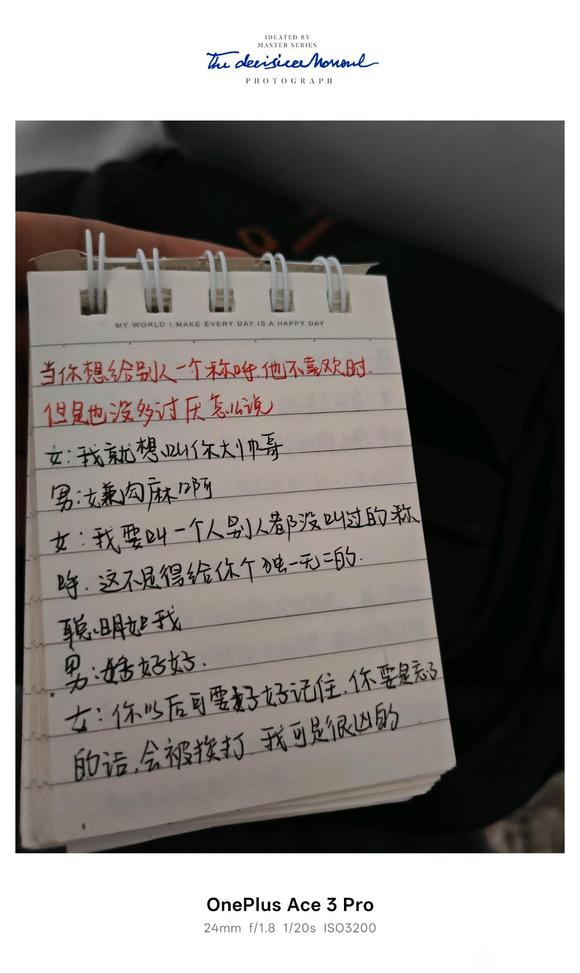 IDEATED BY
MASTER SERIES
The decisive Moment
PHOTOGRAPH
MY WORLD I MAKE EVERY DAY IS A HAPPY DAY
当你想给别人一个称呼.他不喜欢时.
但是也没多讨厌怎么说
女:我就想叫你大帅哥
男:嫌肉麻啊
女:我要叫一个人别人都没叫过的称
呼.这不是得给你个独一无二的.
聪明如我
男:好好.
女:你以后可要好好记住.你要是忘了
的话,会被挨打.我可是很凶的
OnePlus Ace 3 Pro
24mm f/1.8 1/20s ISO3200